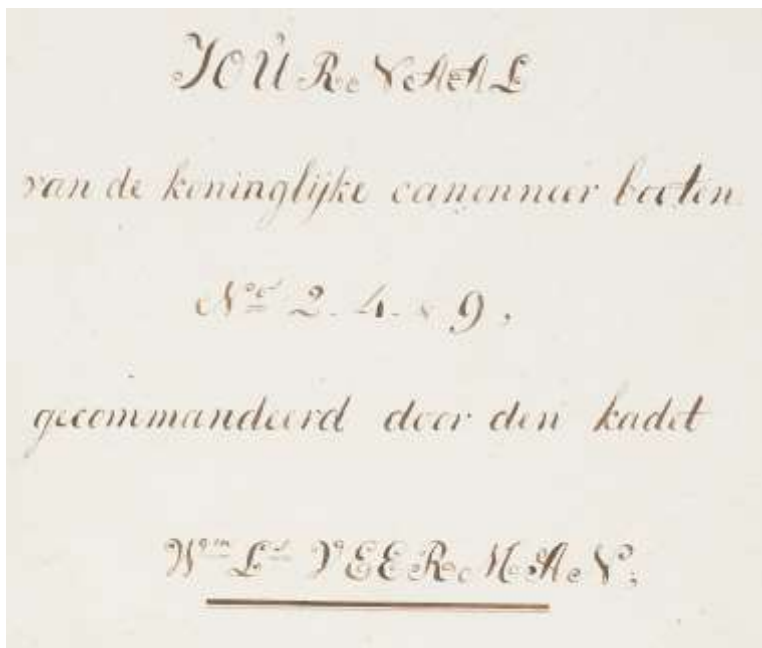 JOÙRNAAL
van de koninglijke canonneer booten
Nos 2. 4. & 9,
gecommandeerd door den kadet
Wm Ls VEERMAN;